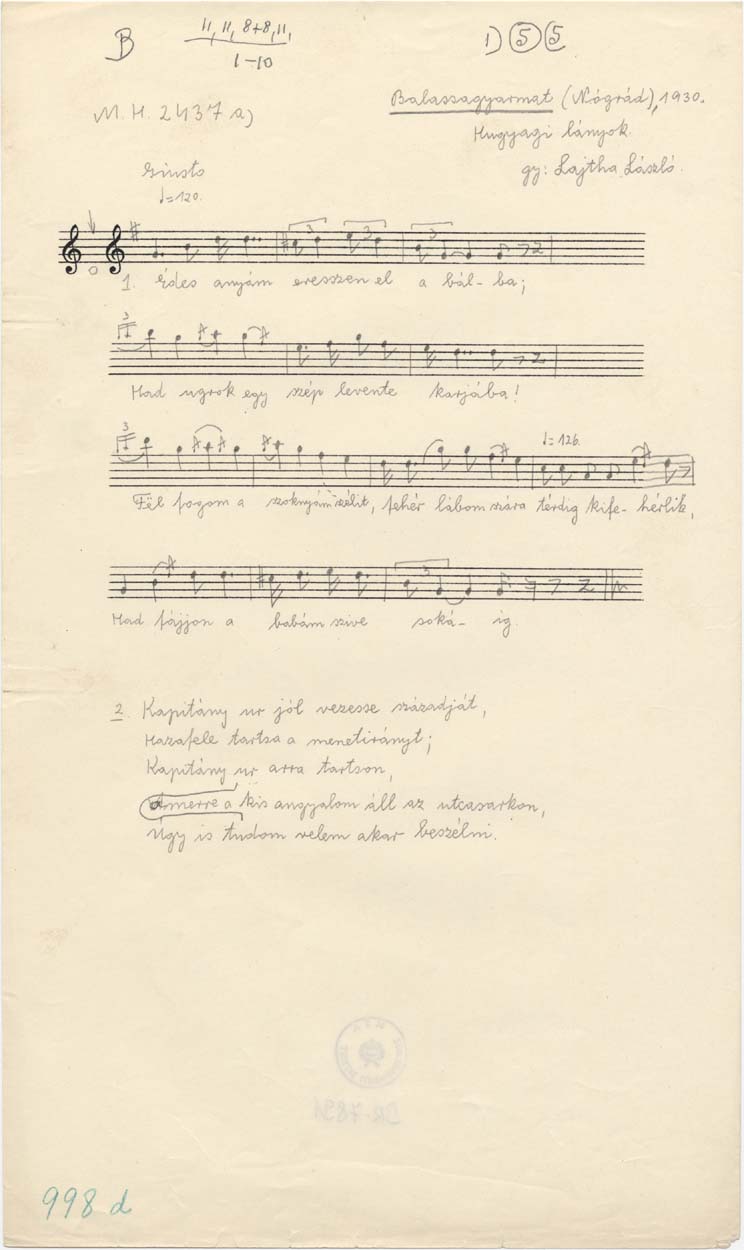 B
11, 11, 8+8, 11,
1-10
1) 5 5
M. H. 2437 a)
Balassagyarmat (Nógrád), 1930.
Hugyagi lányok.
gy: Lajtha László.
Giusto
♩=120.
3 3 3
1. Édes anyám eresszen el a bál- ba;
3
Had ugrok egy szép levente karjába!
3
♩=126.
Fël fogom a szoknyám szélit, fehér lábom szára térdig kife- hérlik,
3
Had fájjon a babám szive soká- ig.
2. Kapitány ur jól vezesse századját,
Hazafele tartsa a menetirányt;
Kapitány ur arra tartson,
Amerre a kis angyalom áll az utcasarkon,
Úgy is tudom velem akar beszélni.
998 d